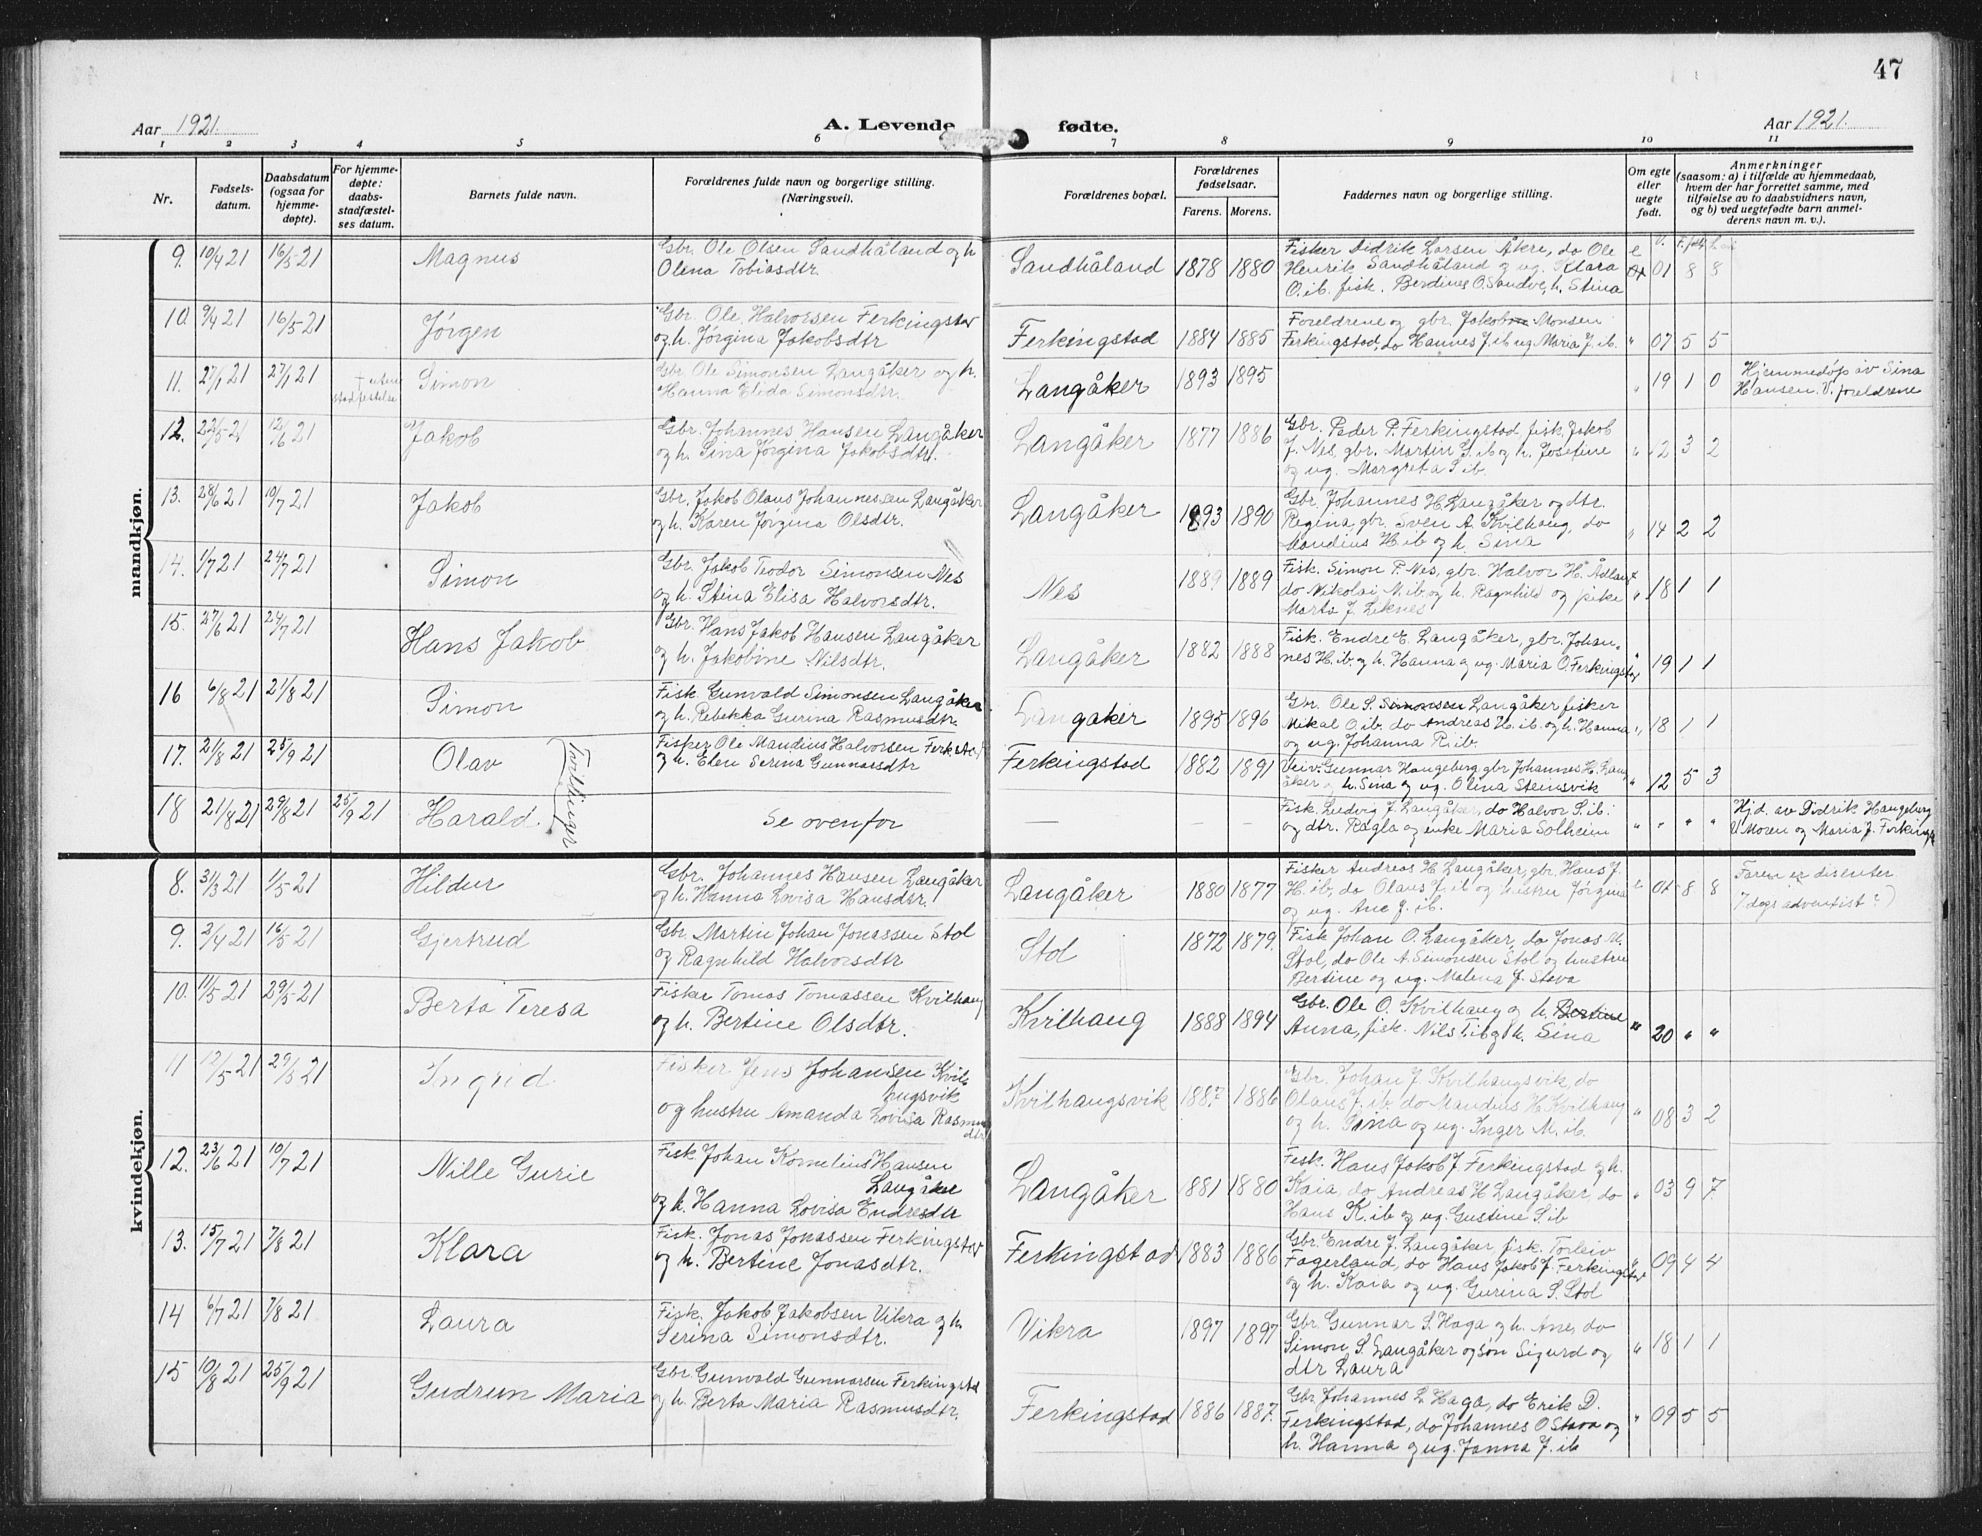 47
Aar 1921.
A. Levende fødte.
Aar 1921.
1 2 3 4 5 6 7 8 9 10 11
Nr.
Fødsels-
datum.
Daabsdatum
(ogsaa for
hjemme-
døpte).
For hjemme-
døpte:
daabs-
stadfæstel-
ses datum.
Barnets fulde navn.
Forældrenes fulde navn og borgerlige stilling.
(Næringsvei).
Forældrenes bopæl.
Forældrenes
fødselsaar.
Farens. Morens.
Faddernes navn og borgerlige stilling.
Om egte
eller
uegte
født.
Anmerkninger
(saasom: a) i tilfælde av hjemmedaab,
hvem der har forrettet samme, med
tilføielse av to daabsvidners navn,
og b) ved uegtefødte barn anmel-
derens navn m. v.).
mandkjøn.
9. 10/4 21 16/5 21 Magnus
Gbr. Ole Olsen Sandhåland og h
Olena Tobiasdtr.
Sandhåland 1878 1880
Fisker Didrik Larsen Åkre, do Ole
Henrik Sandhåland og ug. Klara
O. ib. fisk. Berdines O. Sandve, h. Stina
01 8 8
10. 9/4 21 16/5 21 Jørgen
Gbr. Ole Halvorsen Ferkingstad
og h. Jørgina Jakobsdtr
Ferkingstad 1884 1885
Foreldrene og gbr. Jakob Monsen
Ferkingstad, do Hannes J. ib ug Maria J. ib.
" 07 5 5
11. 27/1 21 27/1 21 † uten
stadfestelse
Simon
Gbr Ole Simonsen Langåker og h.
Hanna Elida Simonsdtr.
Langåker 1893 1895
" 19 1 0
Hjemmedøp av Sina
Hansen. V. foreldrene
12. 22/5 21 12/6 21 Jakob
Gbr. Johannes Hansen Langåker
og h. Sina Jørgina Jakobsdtr.
Langåker 1877 1886
Gbr. Peder P. Ferkingstad fisk. Jakob
J. Nes, gbr. Martin S. ib og h. Josefine
og ug. Margreta S. ib.
" 12 3 2
13. 28/6 21 10/7 21 Jakob
Gbr. Jakob Olaus Johannesen Langåker
og h. Karen Jørgina Olsdtr.
Langåker 1893 1890
Gbr. Johannes H. Langåker og dtr.
Regina, gbr. Sven A. Kvilhaug, do
Mandius H. ib og h. Sina
" 14 2 2
14. 1/7 21 24/7 21 Simon
Gbr. Jakob Teodor Simonsen Nes
og h. Stina Elisa Halvorsdtr.
Nes 1889 1889
Fisk. Simon P. Nes, gbr. Halvor H. Ådland
do Nikolai N. ib. og h. Ragnhild og pike
Marta J. Liknes
" 18 1 1
15. 27/6 21 24/7 21 Hans Jakob
Gbr. Hans Jakob Hansen Langåker
og h. Jakobine Nilsdtr.
Langåker 1882 1888
Fisk. Endre E. Langåker, gbr. Johan-
nes H. ib. og h. Hanna og ug. Maria O. Ferkingstad
" 19 1 1
16 6/8 21 21/8 21 Simon
Fisk. Gunvald Simonsen Langåker
og h. Rebekka Gurina Rasmusdtr.
Langåker 1895 1896
Gbr. Ole S. Simonsen Langåker fisker
Mikal O. ib. do Andreas H. ib. og h. Hanna
og ug. Johanna R. ib.
" 18 1 1
17. 21/8 21 25/9 21 Olav
Fisker Ole Mandius Halvorsen Ferkstad
og h. Elen Serina Gunnarsdtr
Ferkingstad 1882 1891
Veiv. Gunnar Haugeberg gbr Johannes H. Lang
åker og h. Sina og ug. Olina Steinsvik
" 12 5 3
Tvillinger
18 21/8 21 29/8 21 25/9 21 Harald.
Se ovenfor
— — —
Fisk. Ludvig J. Langåker, do Halvor S. ib.
og dtr. Ragla og enke Maria Solheim
" " " "
Hjd. av Didrik Haugeberg
V Moren og Maria J. Ferkings
kvindekjøn.
8. 31/3 21 1/5 21 Hildur
Gbr. Johannes Hansen Langåker
og h. Hanna Lovisa Hansdtr.
Langåker 1880 1877
Fisker Andreas H Langåker, gbr. Hans J.
H. ib, do Olaus J. ib og hustru Jørgina
og ug. Ane J. ib.
" 01 8 8
Faren er disenter
7 dags adventist?)
9. 2/4 21 16/5 21 Gjertrud
Gbr. Martin Johan Jonassen Stol
og Ragnhild Halvorsdtr
Stol 1872 1879.
Fisk Johan O. Langåker, do Jonas M.
Stol, do Ole A. Simonsen Stol og hustru
Bertine og ug. Malena J. Stava
10. 11/5 21 29/5 21 Berta Teresa
Fisker Tomas Tomassen Kvilhaug
og h. Bertine Olsdtr.
Kvilhaug 1888 1894
Gbr. Ole O. Kvilhaug og h. Bertine
Anna, fisk. Nils T. ib og h. Sina
" 20 " "
11 12/5 21 29/5 21 Ingrid
Fisker Jens Johansen Kvil-
hugsvik
og hustru Amanda Lovisa Rasmus
dtr
Kvilhaugsvik 1887 1886
Gbr. Johan J. Kvilhaugsvik, do
Olaus J. ib. do Mandius H. Kvilhaug
og h. Sina og ug. Inger M. ib.
" 08 3 2
12. 23/6 21 10/7 21 Nille Gurie
Fisk. Johan Kornelius Hansen
Langåker
og h. Hanna Lovisa Endresdtr
Langåker 1881 1880
Fisk. Hans Jakob J. Ferkingstad og h.
Kaia, do Andreas H Langåker, do
Hans K. ib og ug. Gustine S. ib
" 03 9 7
13. 15/7 21 7/8 21 Klara
Fisk. Jonas Jonassen Ferkingstad
og h. Bertine Jonasdtr.
Ferkingstad 1883 1886
Gbr. Endre J. Langåker, fisk. Torleiv
Fagerland, do Hans Jakob J. Ferkingstad
og h. Kaia og ug. Gurina S. Stol
" 09 4 4
14 6/7 21 7/8 21 Laura
Fisk. Jakob Jakobsen Vikra og h.
Serina Simonsdtr.
Vikra 1897 1897
Gbr. Gunnar S. Haga og h. Ane, do
Simon S. Langåker og søn Sigurd og
dtr Laura
" 18 1 1
15 10/8 21 25/9 21 Gudrun Maria
Gbr. Gunvald Gunnarsen Ferkingstad
og h. Berta Maria Rasmusdtr.
Ferkingstad 1886 1887.
Gbr Johannes L Haga, do Erik D.
Ferkingstad, do Johannes O Stava og
h. Hanna og ug. Janna J. ib
" 09 5 5